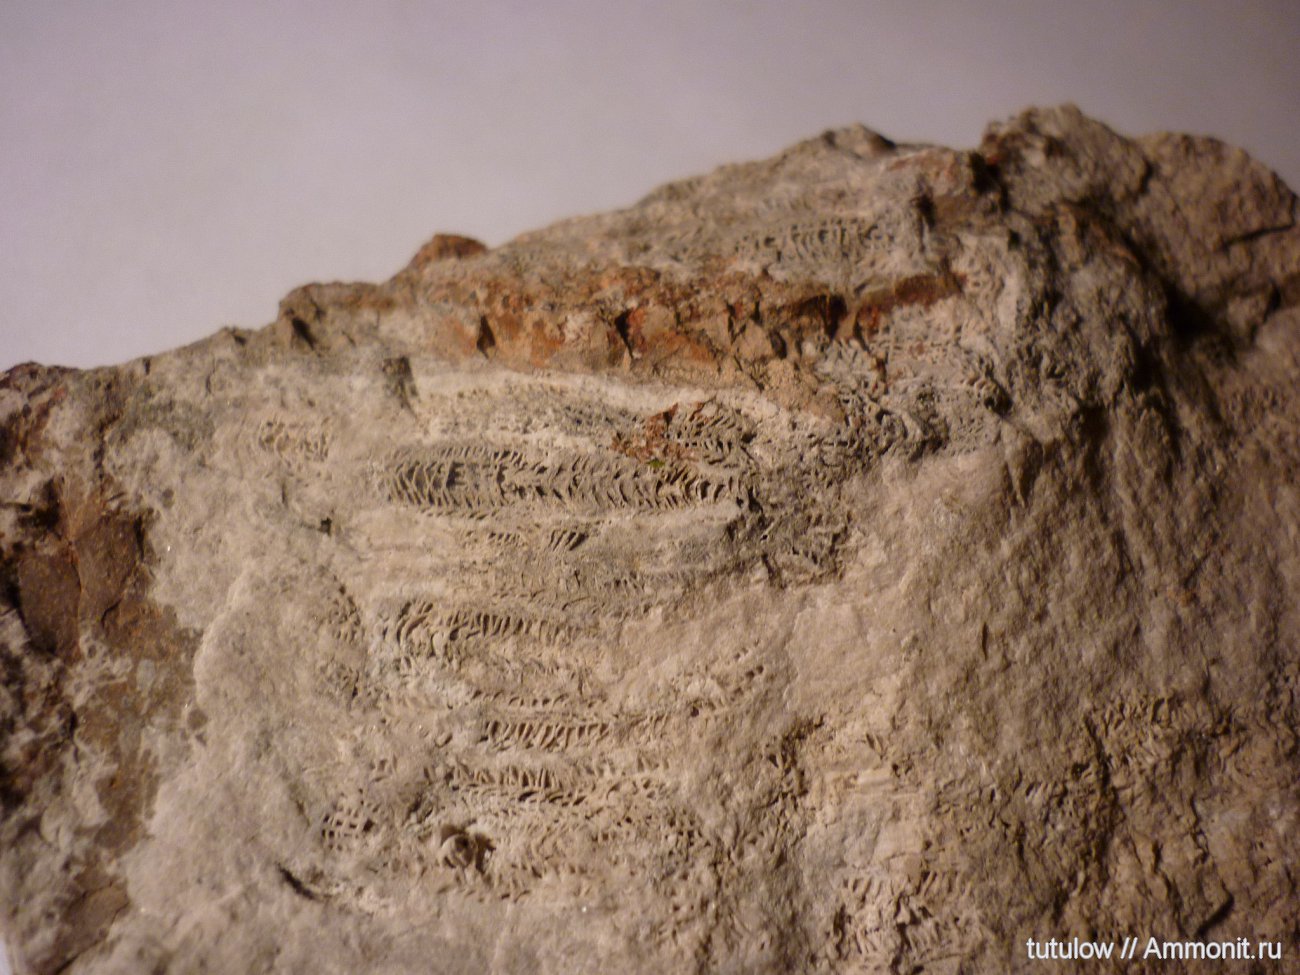 tutulow // Ammonit.ru